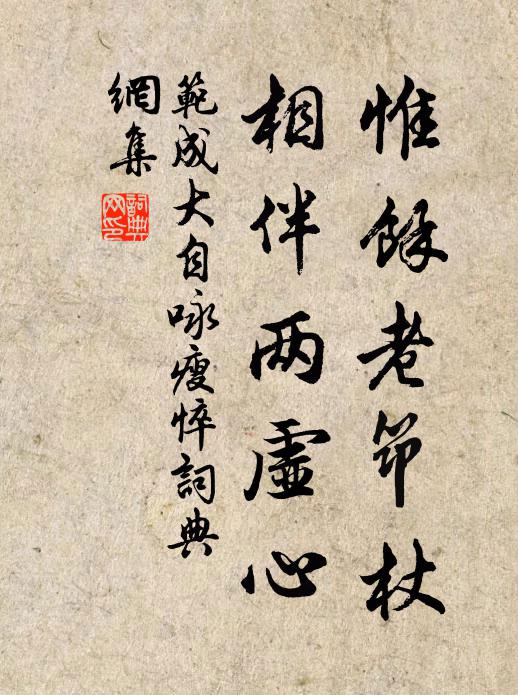 惟餘老笻杖
相伴两虛心
範成大自咏瘦悴詞典
網集
詞典网印